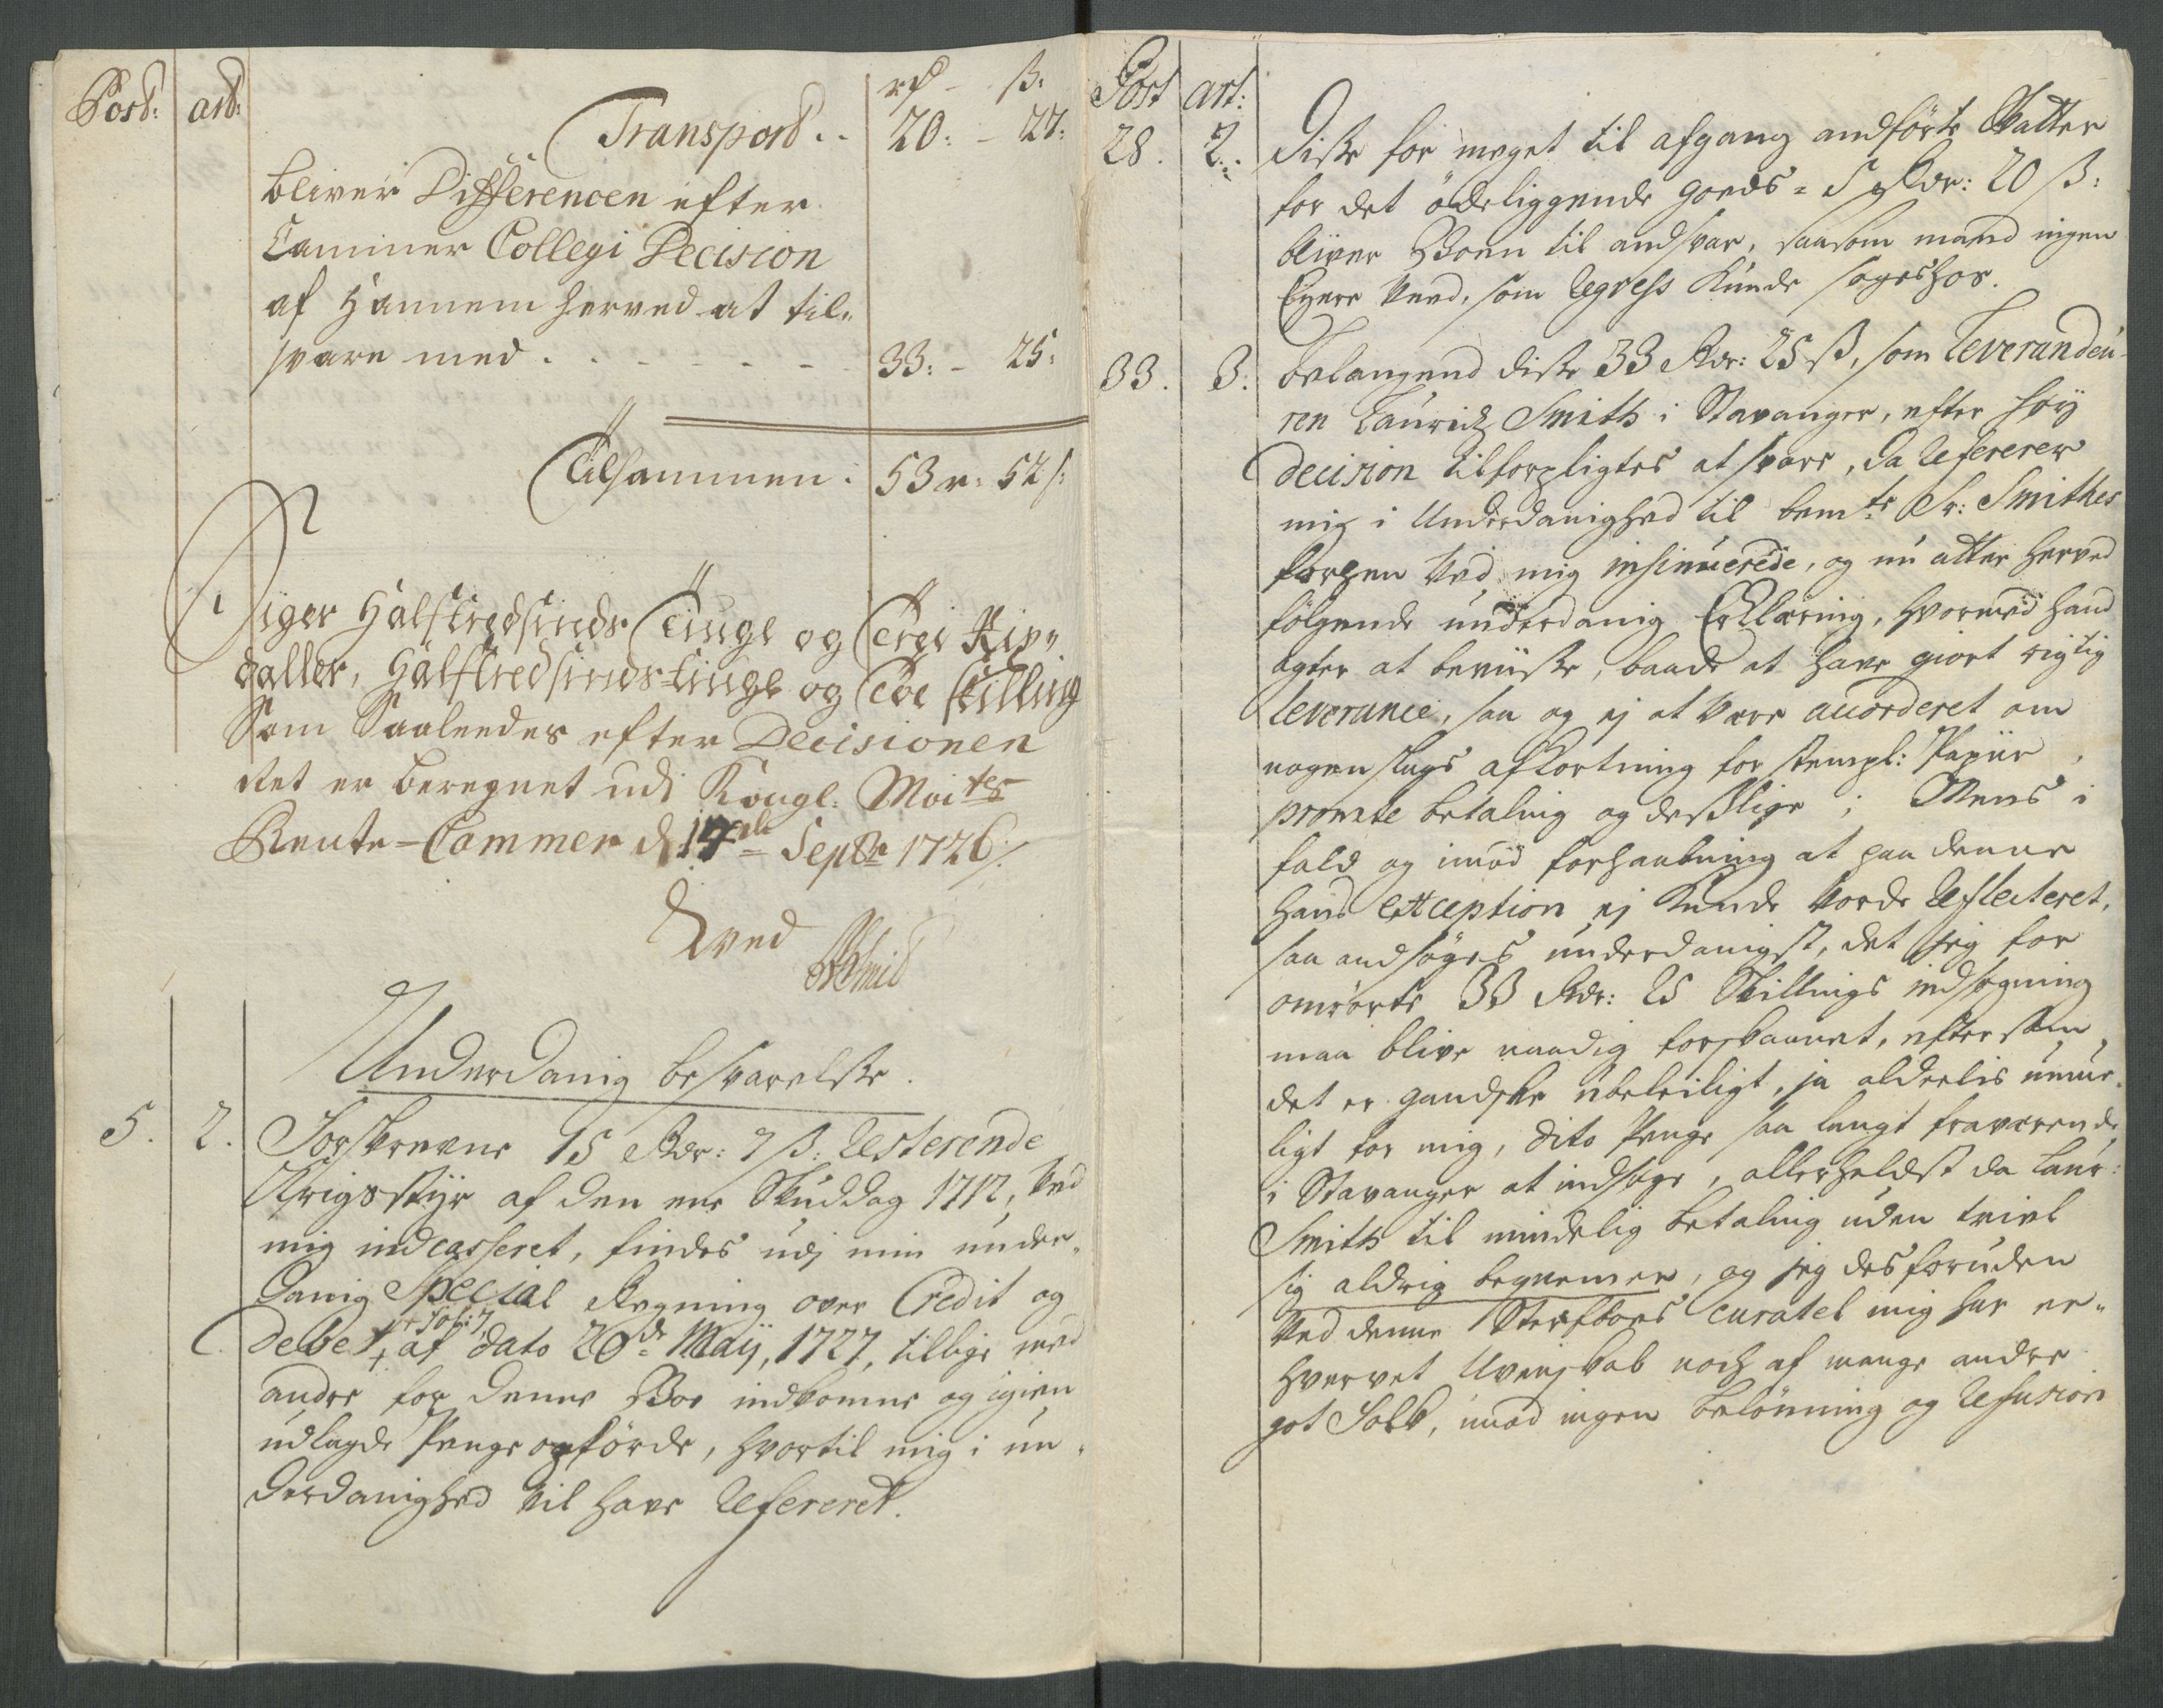 Post: art:
rd - ß:
Transport. . 20: - 27:
bliver Differencen efter
Cammer Collegi Decision
af Hannem herved at til-
svare med . . . . . . 33: - 25:
Tilsammen: 53 r: 52 ß:
Siger Halftredsinds Tiuge og Trei Rix-
daller, Halftredsinds tiuge og Toe skilling
Som Saaleedes efter Decisionen
Ret er beregnet udi Kongl: Maites
Rente-Cammer d 17de Septbr 1726/.
Underdanig besvarelse.
5. 2. Forskrevne 15 Rdr: 7 ß: Resterende
Krigsstyr af den ene Skuddag 1712, ved
mig indcasseret, findes udj min under-
danig Special Regning over Credit og
+ fol: 7,
Debet + af dato 20de Maij, 1727, tillige med
andre for denne Boe indkomne og igien
udlagde Penge opförde, hvortil mig i un-
derdanighed vil have Refereret.
Post art:
28. 2. Disse for meget til afgang andförte Skatter
for det ödeliggende Goeds = 5 Rdr: 20 ß:
bliver Boen til andsvar, saasom mand ingen
Eyere veed, som Regress kunde søges hos.
33. 3. Belangend disse 33 Rdr: 25 ß, som Leverandeu-
ren Lauridz Smith i Stavanger, efter høy
Decision tilforpligtes at svare, da Refererer
mig i Underdanighed til bemte Sr: Smithes
forhen ved mig insinuerede, og nu atter herved
følgende underdanig Erklæring, hvormed hand
agter at beviise, baade at have giort rigtig
Leverance, saa og ej at være accorderet om
nogen slags afkortning for stempl: Papiir,
promte betaling og desslige; Mens i
fald og imod forhaabning at paa denne
hans Exception ej kunde vorde Reflecteret,
saa andsøges underdanigst, det jeg for
omrørte 33 Rdr: 25 Skillings indsøgning
maa blive naadig forskaanet, eftersom
det er gandske ubeleiligt, ja alderlis umue-
ligt for mig, dito Penge saa langt fraværende
i Stavanger at indsøge, allerheldst da Laur:
Smith til mindelig betaling uden tvivl
sig aldrig beqvemer, og jeg desforuden
ved denne Sterfboes Curatel mig har er-
hvervet Uvenskab noch af mange andre
got Folk, imod ingen belönning og Refusion